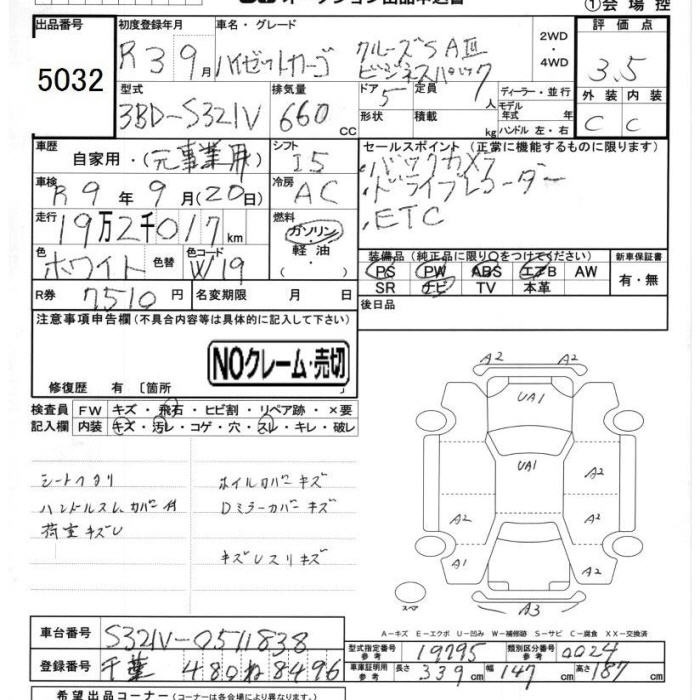 ①会場控
出品番号 初度登録年月 車名・グレード 評価点
5032 R3 9月 ハイゼットカーゴ クルーズSAⅢ ビジネスパック 2WD・4WD 3.5
型式 排気量 ドア 定員 ディーラー・並行 外装 内装
3BD-S321V 660cc 5 人 モデル年式 年 C C
形状 積載 kg ハンドル 左・右
車歴 自家用・(元事業用) シフト I5 セールスポイント(正常に機能するものに限ります)
車検 R9年9月(20日) 冷房 AC ・バックカメラ
・ドライブレコーダー
・ETC
走行 19万2千017km 燃料 ガソリン・軽油・( )
色 ホワイト 色替 色コード W19
装備品(純正品に限り○をつけてください) 新車保証書
PS PW ABS エアB AW 有・無
SR ナビ TV 本革
R券 7510円 名変期限 月 日 後日品
注意事項申告欄(不具合内容等は具体的に記入して下さい)
NOクレーム・売切
修復歴 有 〔箇所
検査員 FW キズ・飛石・ヒビ割・リペア跡・×要
記入欄 内装 キズ・汚レ・コゲ・穴・スレ・キレ・破レ
ホイルカバーキズ
ハンドルスレ カバー付 Dミラーカバーキズ
荷室キズU
キズU スリキズ
A2 A2
UA1
UA1
A2
A2 A2
A1 A2
スペア
A3
A-キズ E-エクボ U-凹み W-補修跡 S-サビ C-腐食 XX-交換済
車台番号 S321V-0511838
型式指定番号 参考 19795 類別区分番号 参考 0024
登録番号 千葉 480 ね 8496
車庫証明用 参考 長さ 339cm 幅 147cm 高さ 187cm
希望出品コーナー(コーナーは各会場により異なります。)